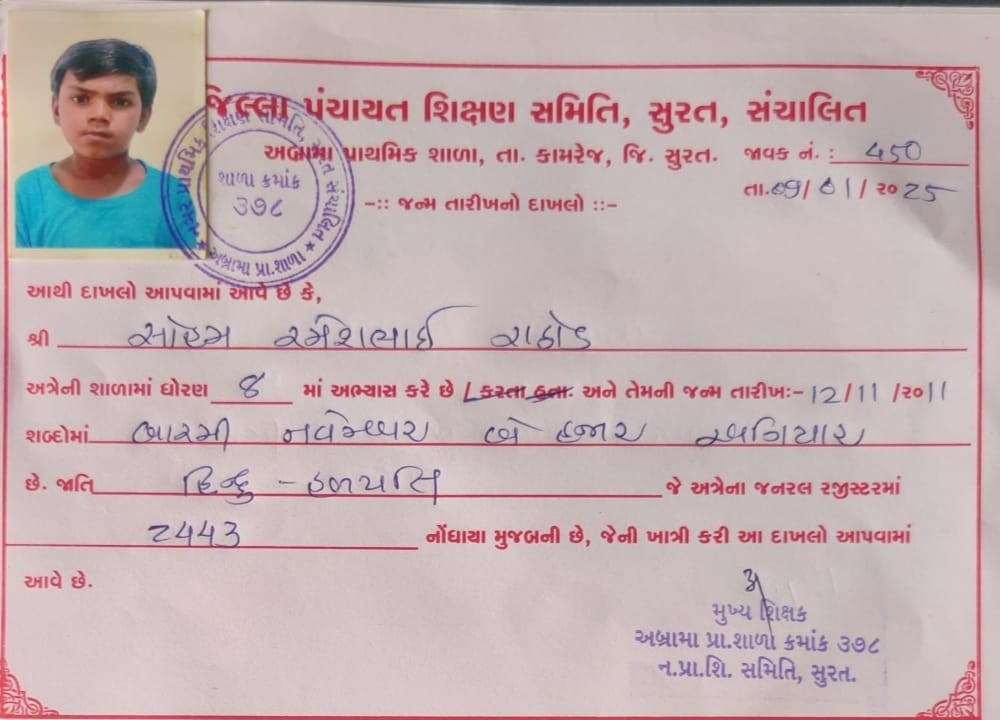 જિલ્લા પંચાયત શિક્ષણ સમિતિ, સુરત, સંચાલિત
અબ્રામા પ્રાથમિક શાળા, તા. કામરેજ, જિ. સુરત. જાવક નં. : 450
તા. 09/01/૨૦25
-:: જન્મ તારીખનો દાખલો ::-
શિક્ષણ સમિતિ, સુરત સંચાલિત
શાળા ક્રમાંક
૩૭૮
અબ્રામા પ્રા.શાળા
આથી દાખલો આપવામાં આવે છે કે,
શ્રી સોહમ રમેશભાઈ રાઠોડ
અત્રેની શાળામાં ધોરણ 8 માં અભ્યાસ કરે છે / કરતા હતા. અને તેમની જન્મ તારીખ:- 12/11/૨૦11
શબ્દોમાં બારમી નવેમ્બર બે હજાર અગિયાર
છે. જાતિ હિન્દુ - હળપતિ જે અત્રેના જનરલ રજીસ્ટરમાં
2443 નોંધાયા મુજબની છે, જેની ખાત્રી કરી આ દાખલો આપવામાં
આવે છે.
મુખ્ય શિક્ષક
અબ્રામા પ્રા.શાળા ક્રમાંક ૩૭૮
ન.પ્રા.શિ. સમિતિ, સુરત.